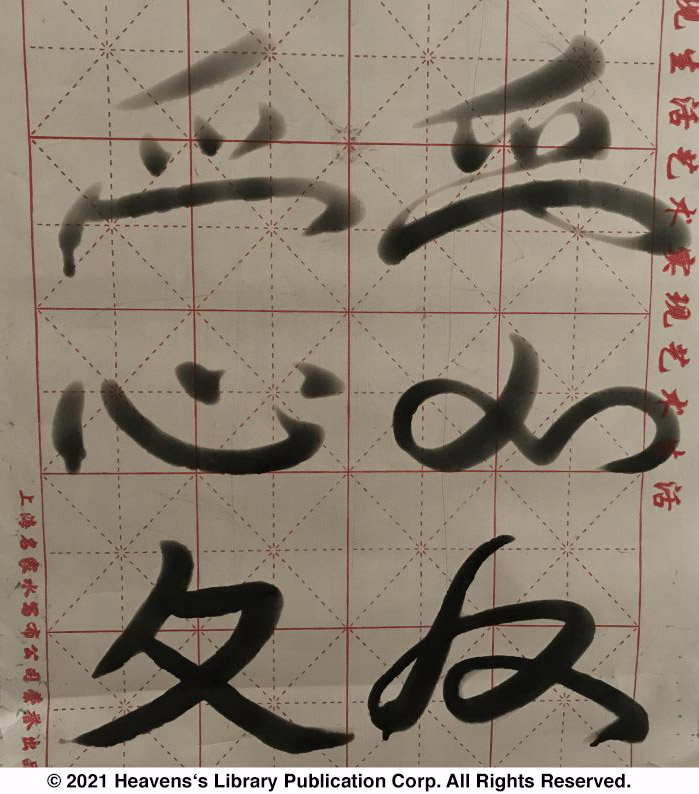 现生活艺术实现艺术生活
爫冖
心
夂
上海名家水写布公司荣誉出品
© 2021 Heavens‘s Library Publication Corp. All Rights Reserved.